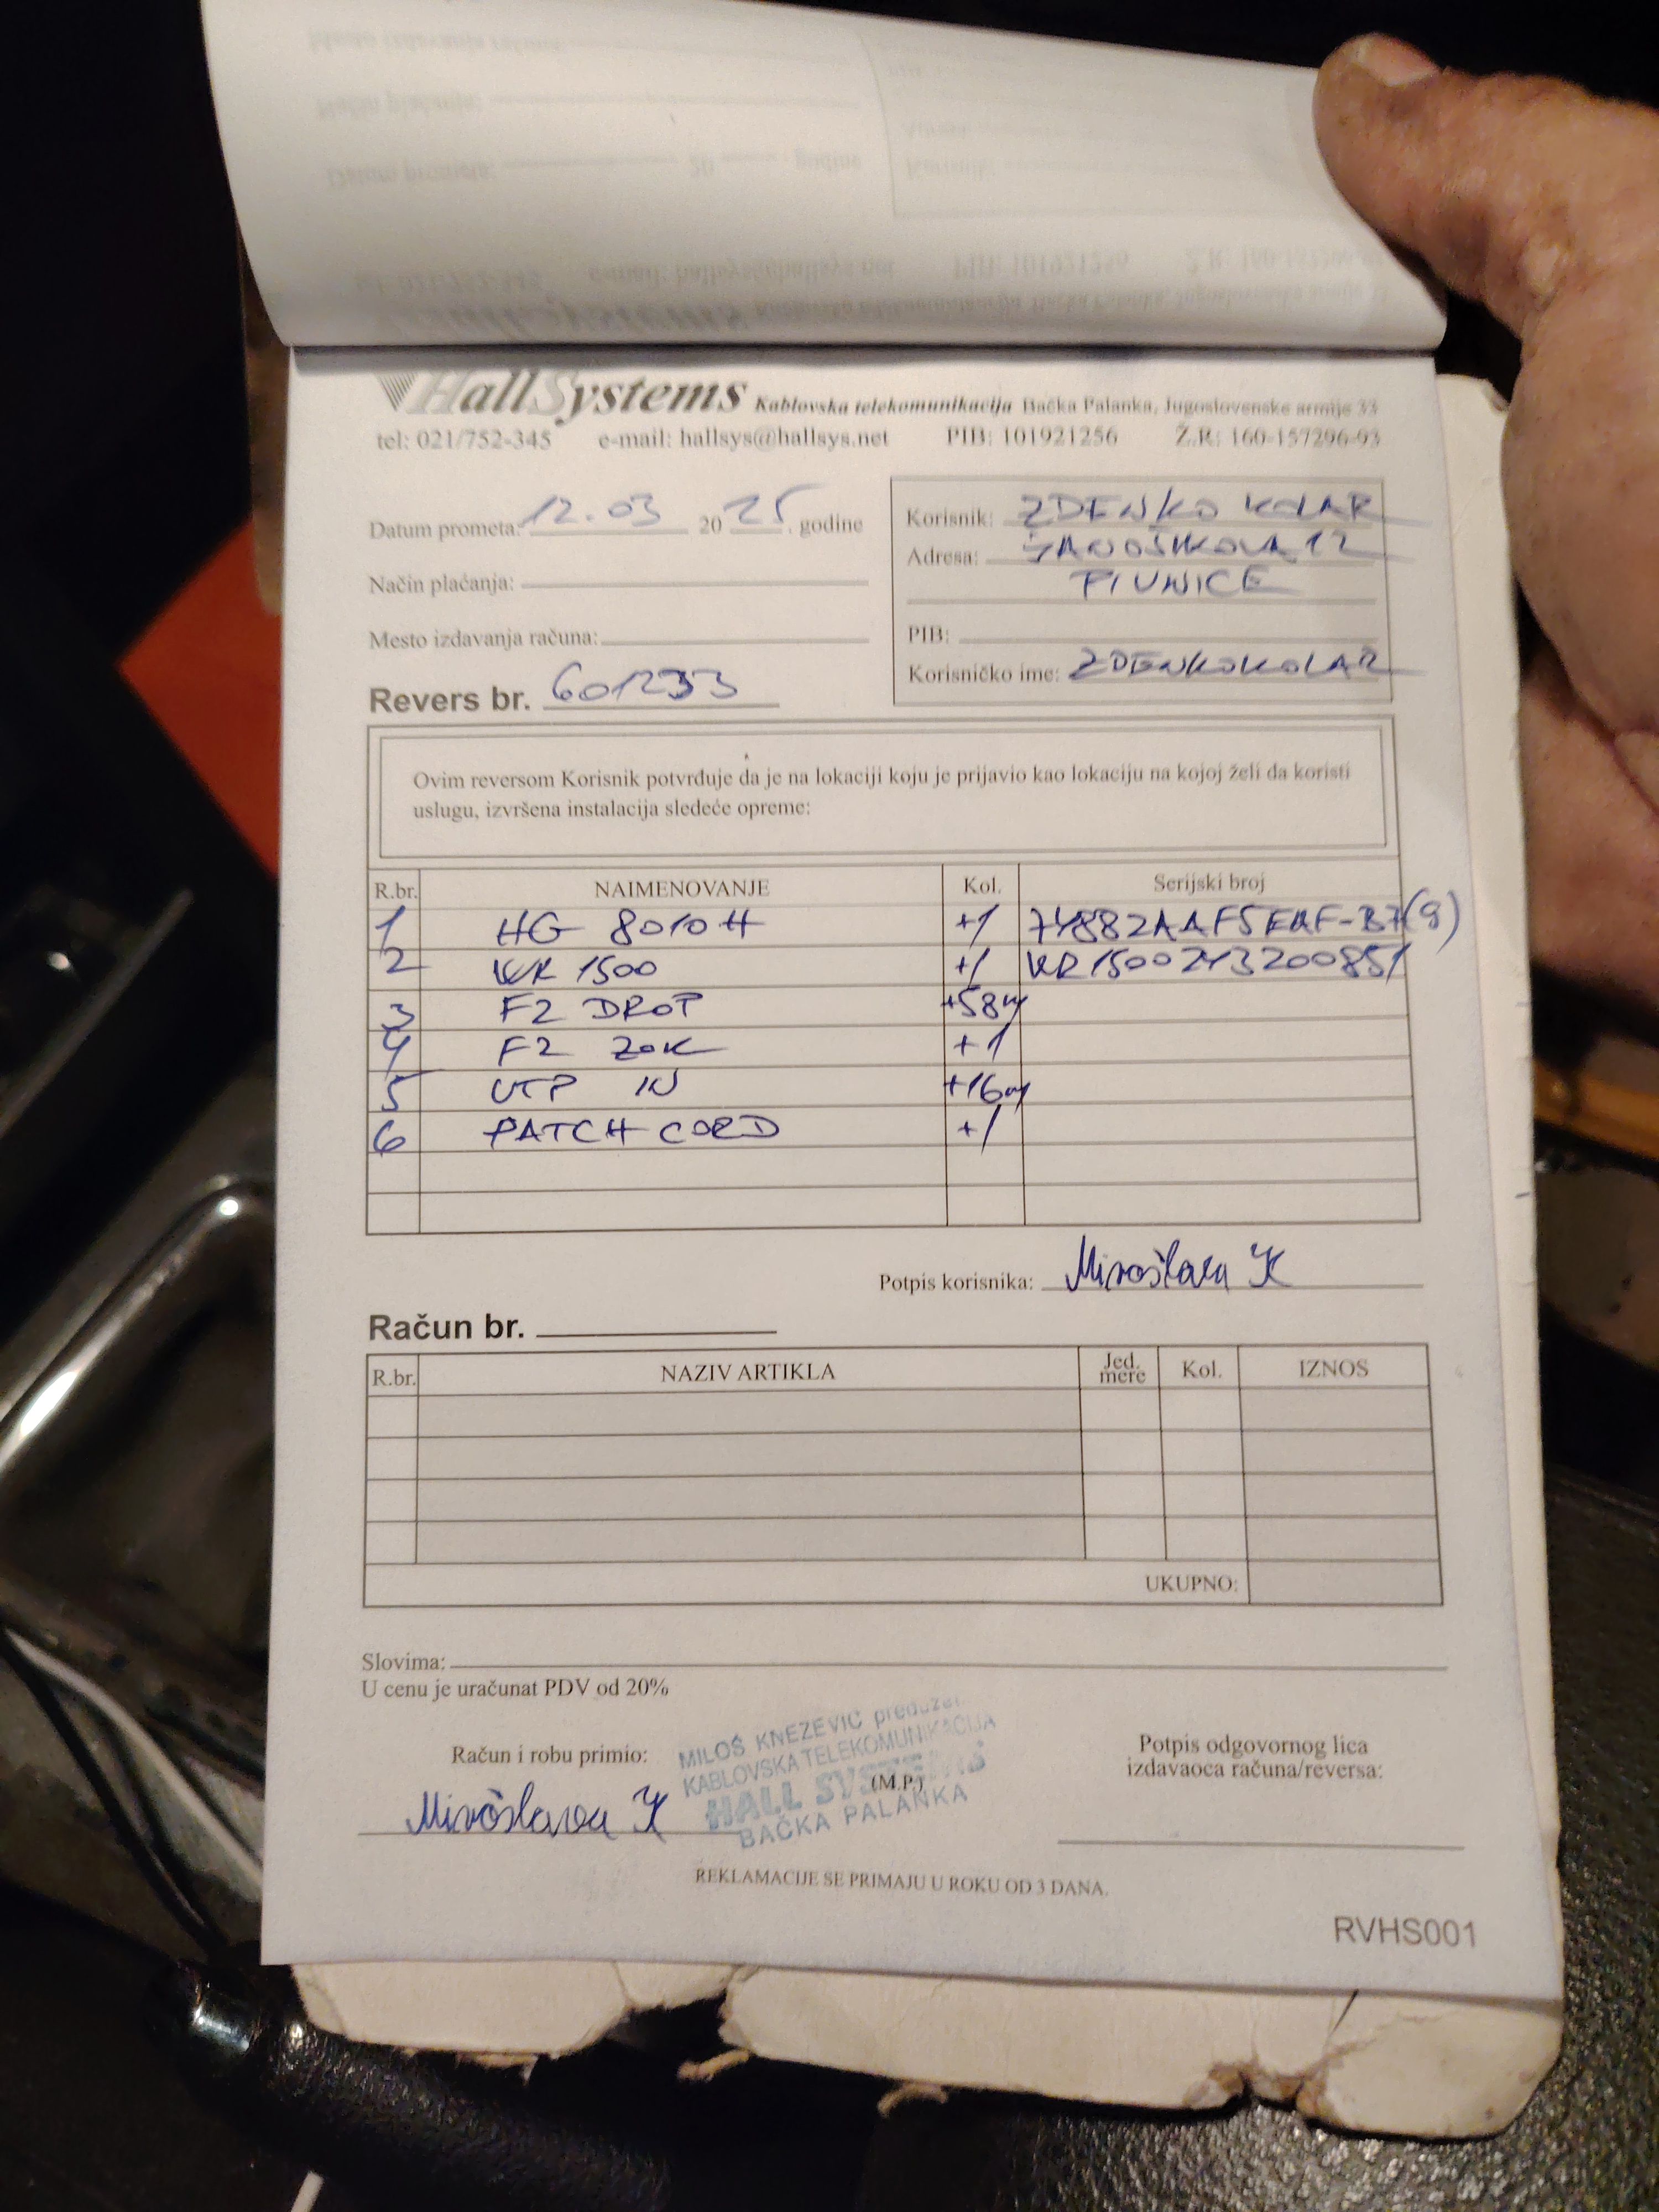 HallSystems Kablovska telekomunikacija Bačka Palanka, Jugoslovenske armije 33
tel: 021/752-345 e-mail: hallsys@hallsys.net PIB: 101921256 Ž.R: 160-157296-93
Datum prometa: 12.03 2025. godine
Način plaćanja:
Mesto izdavanja računa:
Revers br. 601233
Korisnik: ZDENKO KOLAR
Adresa: JANOŠIKOVA 12
PIVNICE
PIB:
Korisničko ime: ZDENKOKOLAR
Ovim reversom Korisnik potvrđuje da je na lokaciji koju je prijavio kao lokaciju na kojoj želi da koristi
uslugu, izvršena instalacija sledeće opreme:
R.br. NAIMENOVANJE Kol. Serijski broj
1 HG 8010H +1
2 WR 1500 +1 WR1500243200851
3 F2 DROP +58m
4 F2 ZOK +1
5 UTP IN +16m
6 PATCH CORD +1
Potpis korisnika: Miroslava K
Račun br.
R.br. NAZIV ARTIKLA Jed. mere Kol. IZNOS
UKUPNO:
Slovima:
U cenu je uračunat PDV od 20%
Račun i robu primio:
Miroslava K
MILOŠ KNEZEVIC preduzet
KABLOVSKA TELEKOMUNIKACIJA
HALL SYSTEMS
BAČKA PALANKA
(M.P.)
Potpis odgovornog lica
izdavaoca računa/reversa:
REKLAMACIJE SE PRIMAJU U ROKU OD 3 DANA.
RVHS001